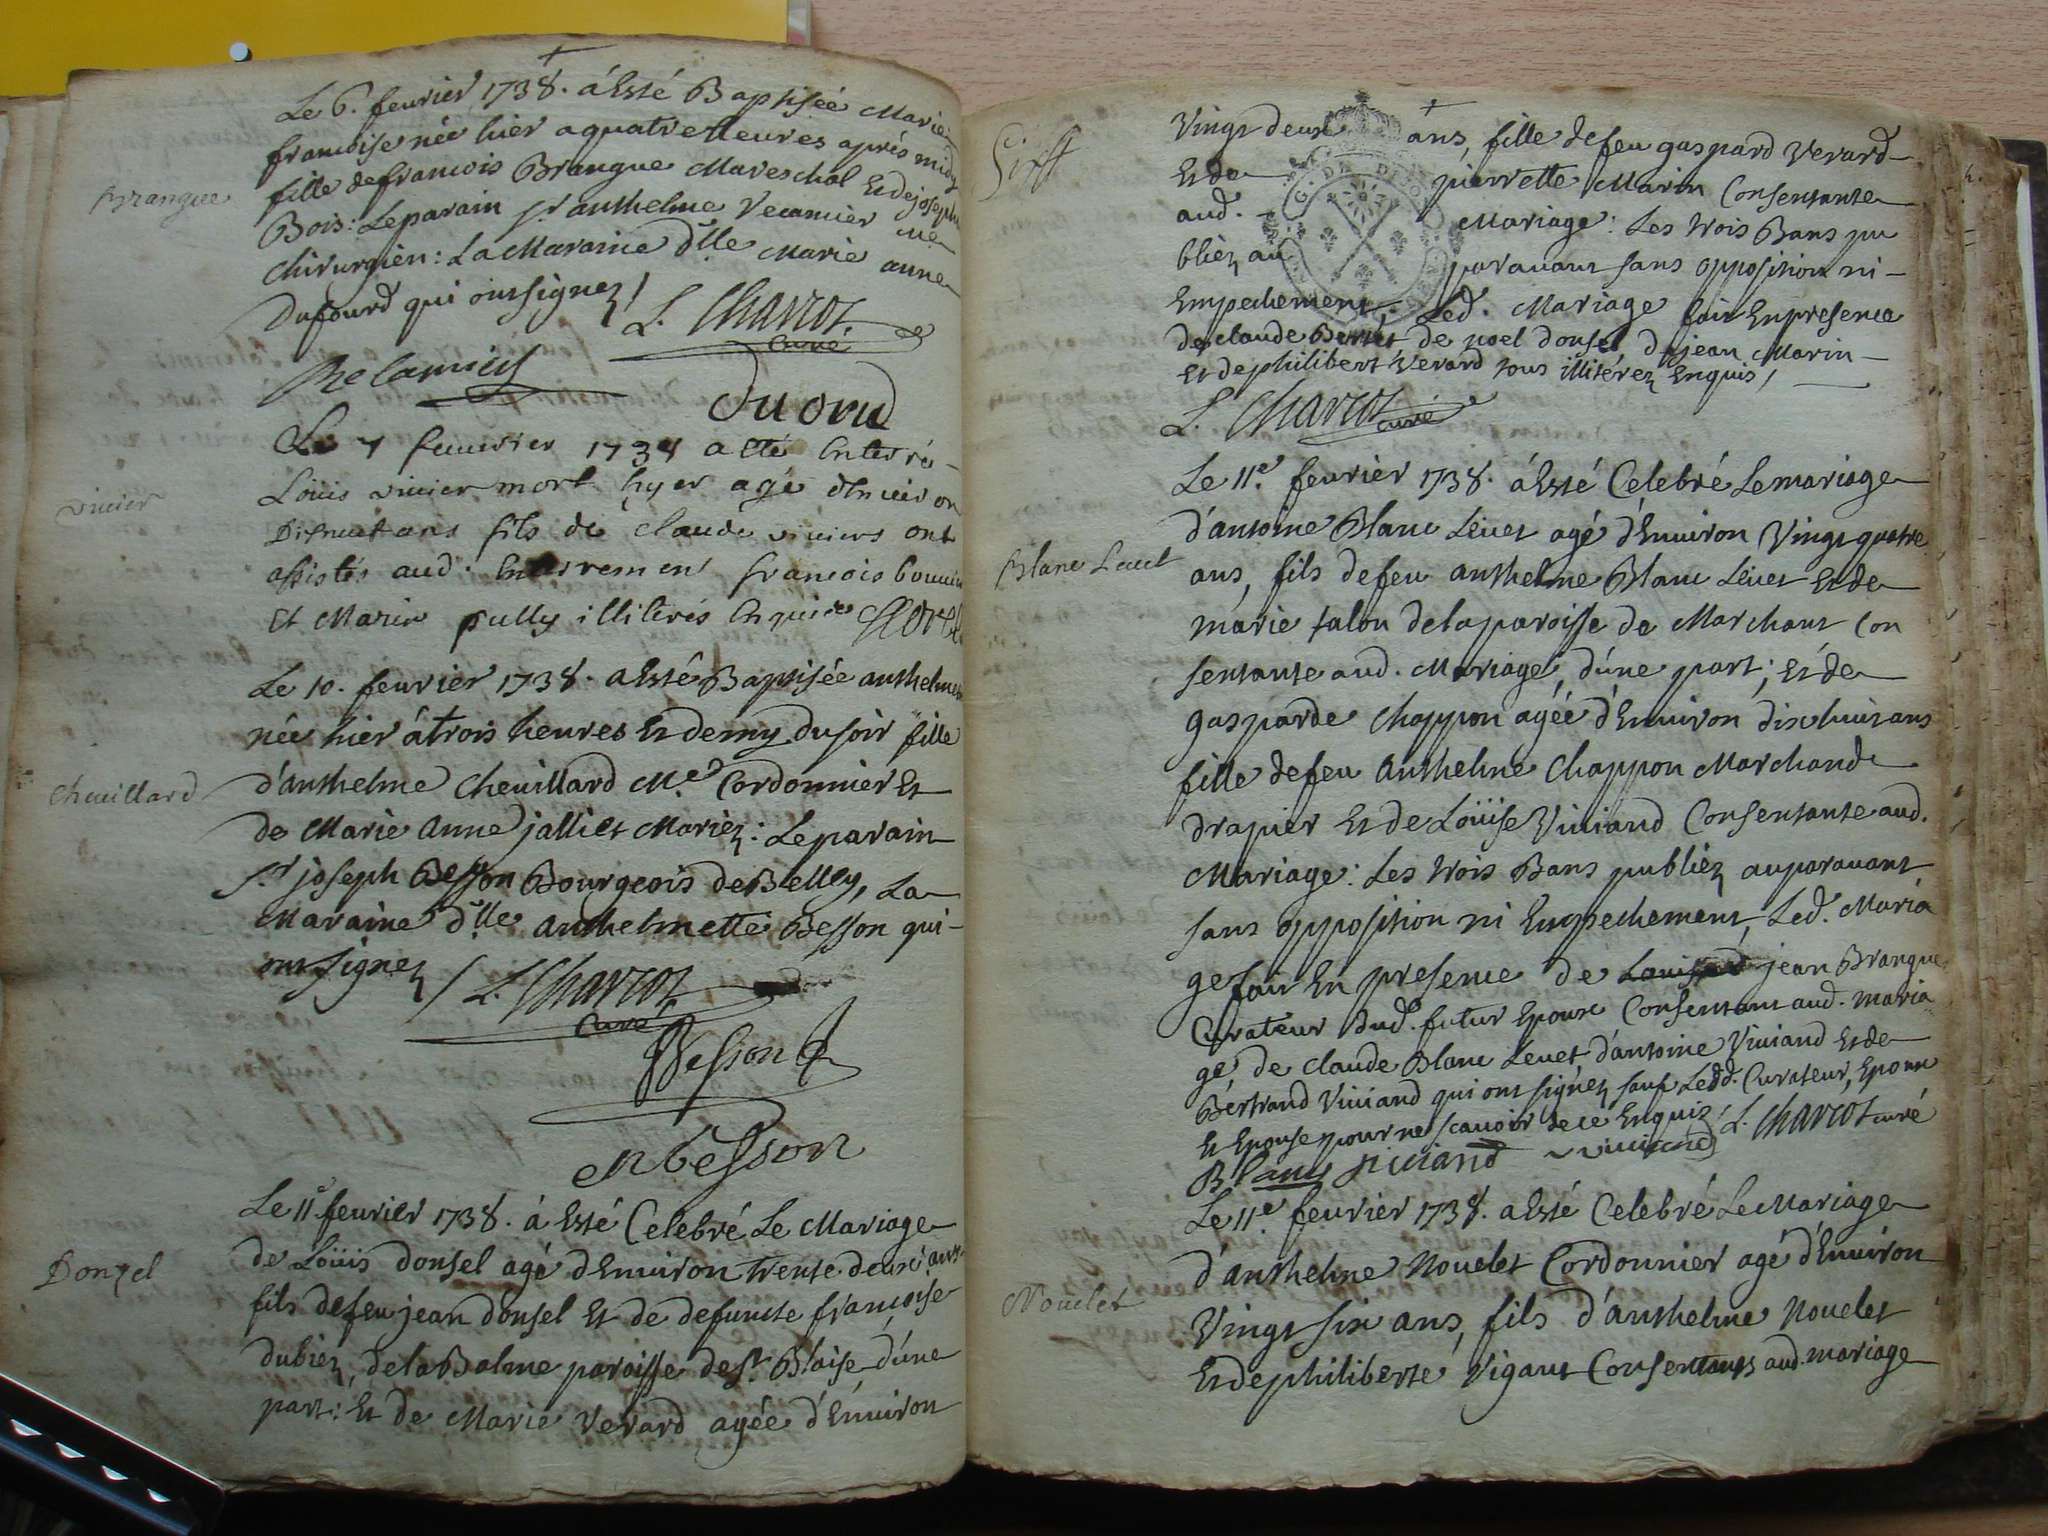 Le 6. feurier 1738. á Esté Baptisée Marie
francoise née hier a quatre heures aprés midy
Brangue
fille de francois Brangue Mareschal Et de joseph
Bois: Le parain Sr. anthelme Recamier Me
chirurgien: La Maraine d'lle Marie anne
Dufourd qui ont signez /
L. Charcot
curé
Recamier
Le 7 feuurier 1738 a eté Enterré
vivier
Loüis vivier mort hyer agé d'Enuiron
ans fils de claude viviers ont
assistés aud. Enterrement francois
Et Marin pully illiterés Enquis
Le 10. feurier 1738. a Esté Baptisée anthelme
née hier á trois heures Et demy du soir fille
Cheuillard
d'anthelme Cheuillard Me. Cordonnier Et
de Marie Anne jalliet Mariez: Le parain
Sr. joseph Besson Bourgeois de Belley, La
Maraine d'lle Anthelmette Besson qui
ont signez / L. Charcot
curé
Besson
Besson
Le 11e feurier 1738. á Esté Celebré Le Mariage
Donzel
de Loüis donsel agé d'Enuiron trente deux ans
fils de feu jean donsel Et de defuncte françoise
dubiez, de la Balme paroisse de St. Blaise d'úne
part: Et de Marie Verard agée d'Enuiron
Vingt deux ans, fille de feu gaspard Verard
Et de pierrette Marin Consentante
aud. Mariage: Les trois Bans pu
bliez au parauant sans opposition ni
Empechement, Led. Mariage fait En presence
de claude de noel donsel de jean Marin
Et de philibert Verard tous illitérez Enquis /
L. Charcot curé
Le 11e. feurier 1738. á Esté Celebré Le mariage
d'antoine Blanc Léuet agé d'Enuiron Vingt quatre
Blanc Leuet
ans, fils de feu anthelme Blanc Léuet Et de
marie talon de la paroisse de Marchant Con
sentante aud. Mariage, d'úne part; Et de
gasparde Chappon agée d'Enuiron dix huit ans
fille de feu Anthelme Chappon Marchand
drapier Et de Loüise Viuiand Consentante aud.
Mariage: Les trois Bans publiez auparauant
sans opposition ni Empechement, Led. Maria
ge fait En presence de jean Brangue
Curateur dud. futur Epoux Consentant aud. maria
ge, de Claude Blanc Leuet, d'antoine Viuiand Et de
Bertrand Viuiand qui ont signéz sauf Lesd. Curateur, Epoux
Et Epouse pour ne scauoir de ce Enquiz / L. Charcot curé
Blanc viuiand viuiand
Le 11e. feurier 1738. a Esté Celebré Le Mariage
d'anthelme Nouelet Cordonnier agé d'Enuiron
Nouelet
Vingt six ans, fils d'anthelme Nouelet
Et de philiberte Vigant Consentants aud. mariage